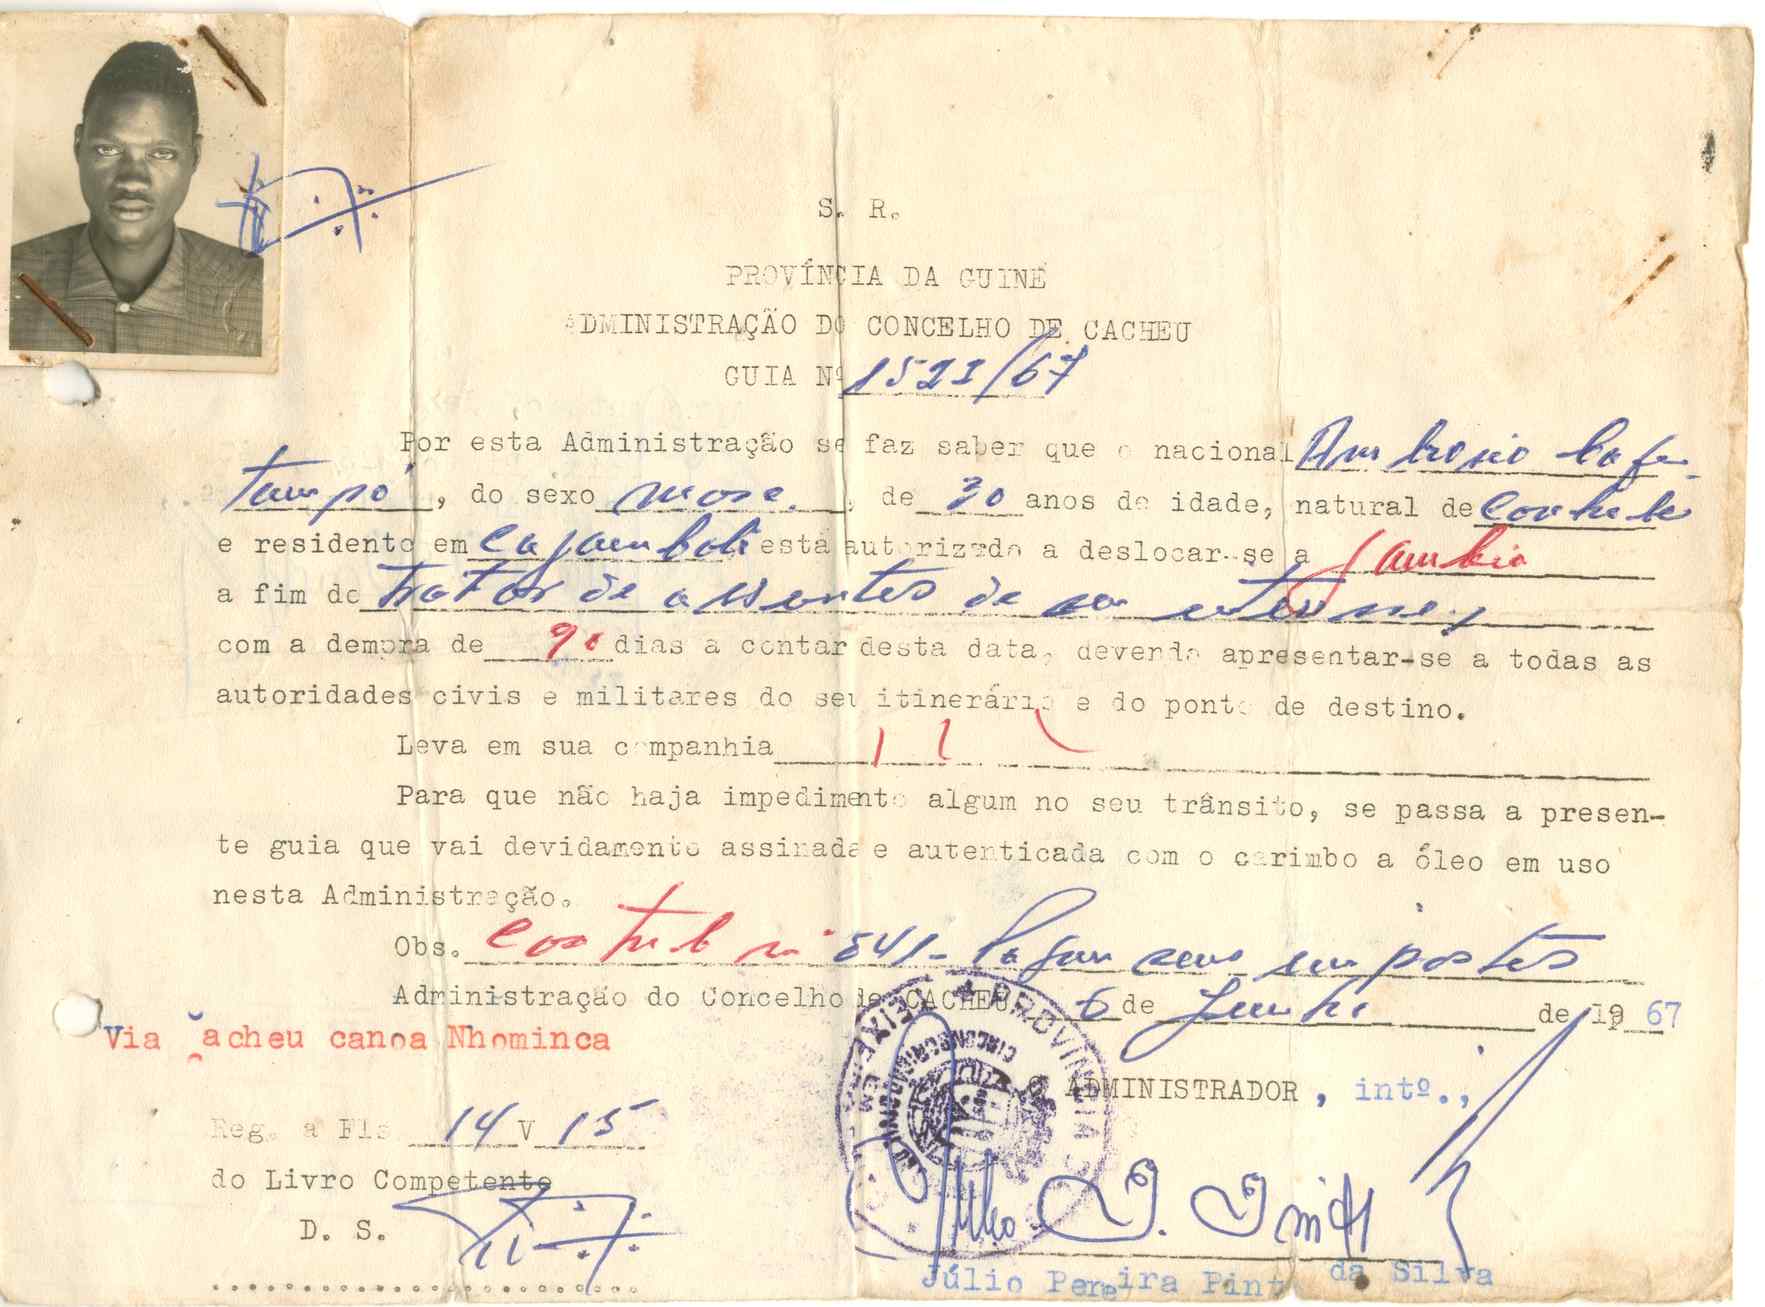 S. R.
PROVÍNCIA DA GUINÉ
ADMINISTRAÇÃO DO CONCELHO DE CACHEU
GUIA Nº 1521/67
Por esta Administração se faz saber que o nacional Ambrosio
, do sexo masc. , de 30 anos de idade, natural de
e residente em está autorizado a deslocar-se a Gambia
a fim de tratar de assuntos de seu interesse,
com a demora de 90 dias a contar desta data, devendo apresentar-se a todas as
autoridades civis e militares do seu itinerário e do ponto de destino.
Leva em sua companhia
Para que não haja impedimento algum no seu trânsito, se passa a presen-
te guia que vai devidamente assinada e autenticada com o carimbo a óleo em uso
nesta Administração.
Obs. nº 541- Pagou seus impostos
Administração do Concelho de CACHEU, 6 de Junho de 19 67
Via Cacheu canoa Nhominca
O ADMINISTRADOR , intº.,
Reg. a Fls 14 V 15
do Livro Competente
D. S.
Júlio Pereira Pinto da Silva